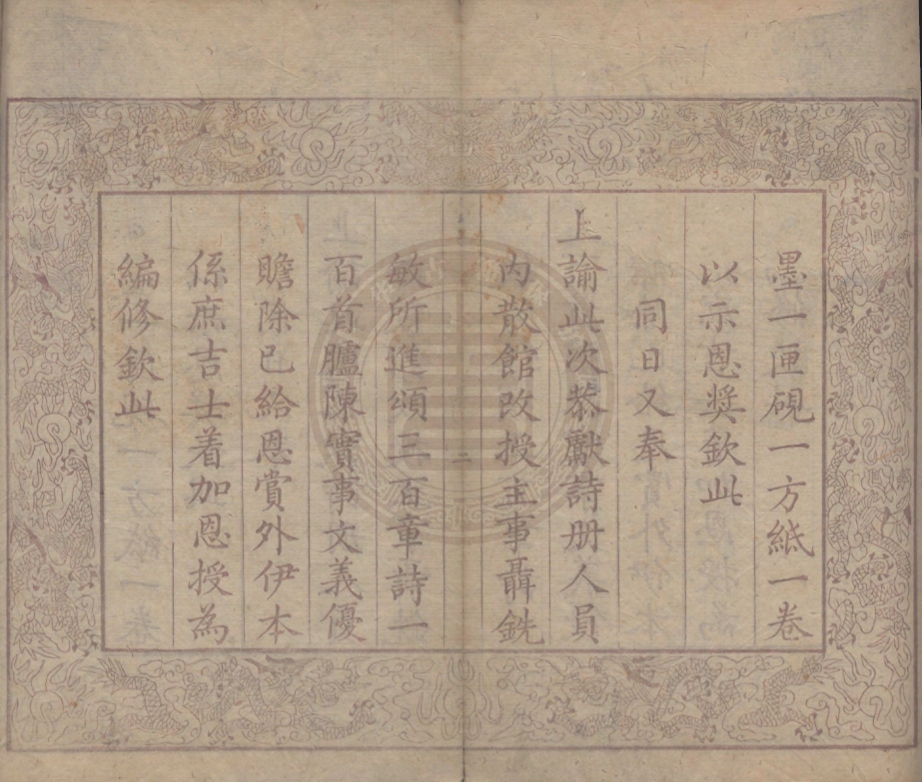 墨一匣硯一方紙一卷
以示恩奬欽此
同日又奉
上諭此次恭獻詩册人員
内散館改授主事聶銑
敏所進頌三百章詩一
百首臚陳實事文義優
贍除已給恩賞外伊本
係庶吉士着加恩授為
編修欽此
二